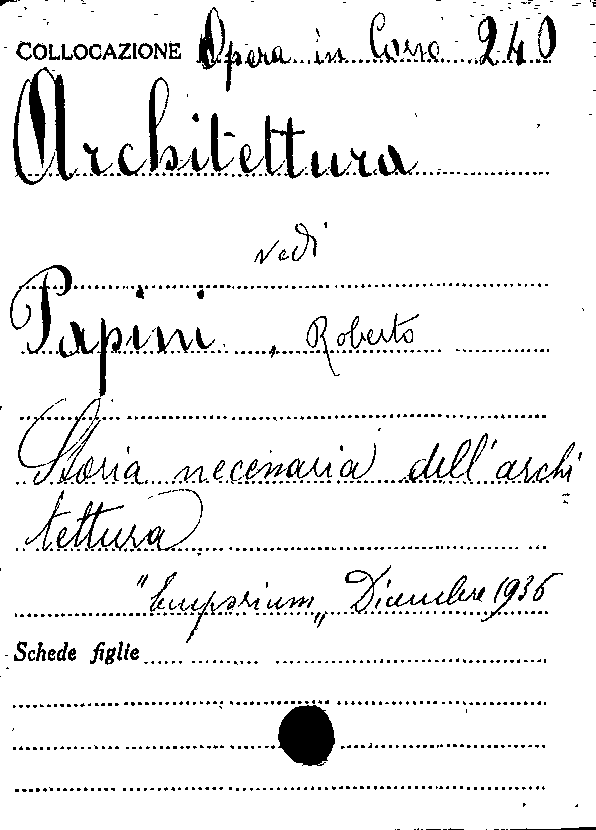 COLLOCAZIONE Opera in Corso 240
Architettura
vedi
Papini, Roberto
Storia necessaria dell'archi
tettura
"Emporium„ Dicembre 1936
Schede figlie